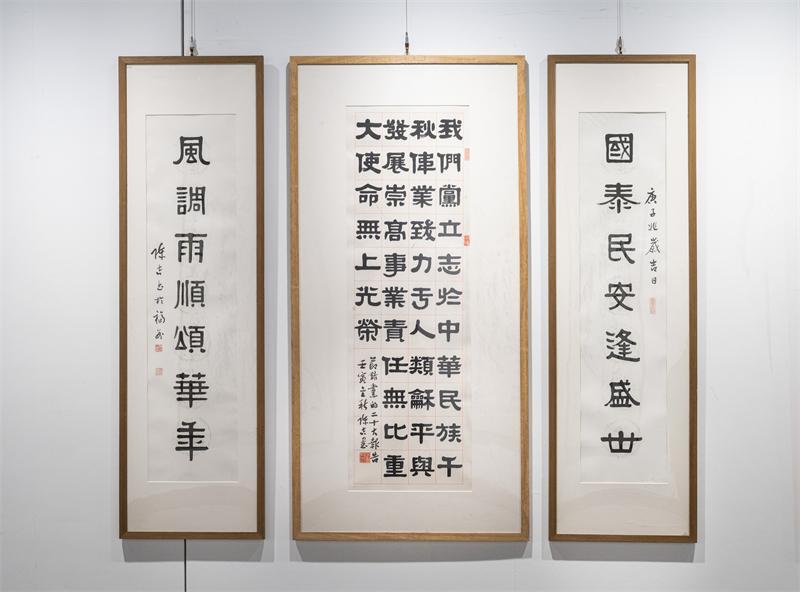 國泰民安逢盛世
庚子兆歲吉日
我們黨立志於中華民族千
秋偉業致力于人類龢平與
發展崇高事業責任無比重
大使命無上光榮
節錄黨的二十大報告
壬寅之秋陳吉書
風調雨順頌華年
陳吉书於福